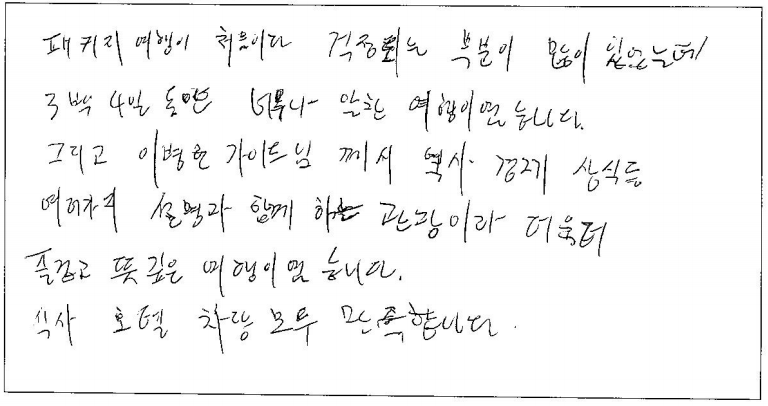 패키지 여행이 처음이다 걱정되는 부분이 많이 있었는데
3박 4일 동안 너무나 알찬 여행이였습니다.
그리고 이병윤 가이드님 께서 역사 경제 상식등
여러가지 설명과 함께 하는 관광이라 더욱더
즐겁고 뜻 깊은 여행이였습니다.
식사 호텔 차량 모두 만족합니다.